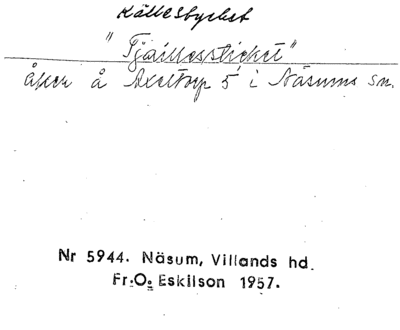 Källesbychet
"Fjaillesstichet"
åker å Axeltorp 5 i Näsums sn.
Nr 5944. Näsum, Villands hd.
Fr.O. Eskilson 1957.